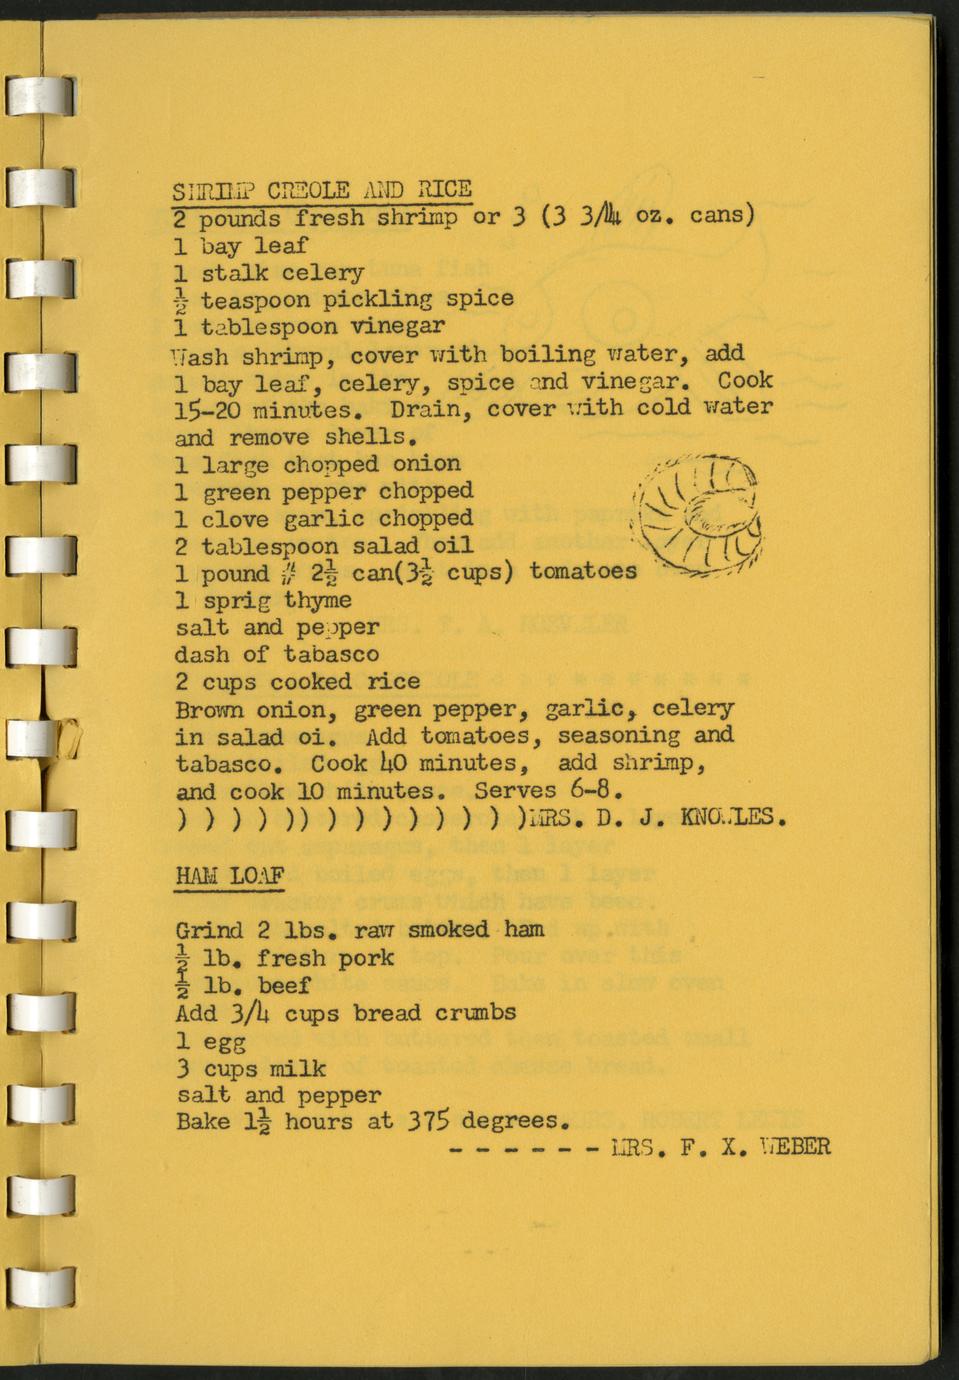 SHRIMP CREOLE AND RICE
2 pounds fresh shrimp or 3 (3 3/4 oz. cans)
1 bay leaf
1 stalk celery
½ teaspoon pickling spice
1 tablespoon vinegar
Wash shrimp, cover with boiling water, add
1 bay leaf, celery, spice and vinegar. Cook
15-20 minutes. Drain, cover with cold water
and remove shells.
1 large chopped onion
1 green pepper chopped
1 clove garlic chopped
2 tablespoon salad oil
1 pound # 2½ can(3½ cups) tomatoes
1 sprig thyme
salt and pepper
dash of tabasco
2 cups cooked rice
Brown onion, green pepper, garlic, celery
in salad oi. Add tomatoes, seasoning and
tabasco. Cook 40 minutes, add shrimp,
and cook 10 minutes. Serves 6-8.
) ) ) ) )) ) ) ) ) ) ) ) )MRS. D. J. KNOWLES.
HAM LOAF
Grind 2 lbs. raw smoked ham
½ lb. fresh pork
½ lb. beef
Add 3/4 cups bread crumbs
1 egg
3 cups milk
salt and pepper
Bake 1½ hours at 375 degrees.
- - - - - - MRS. F. X. WEBER